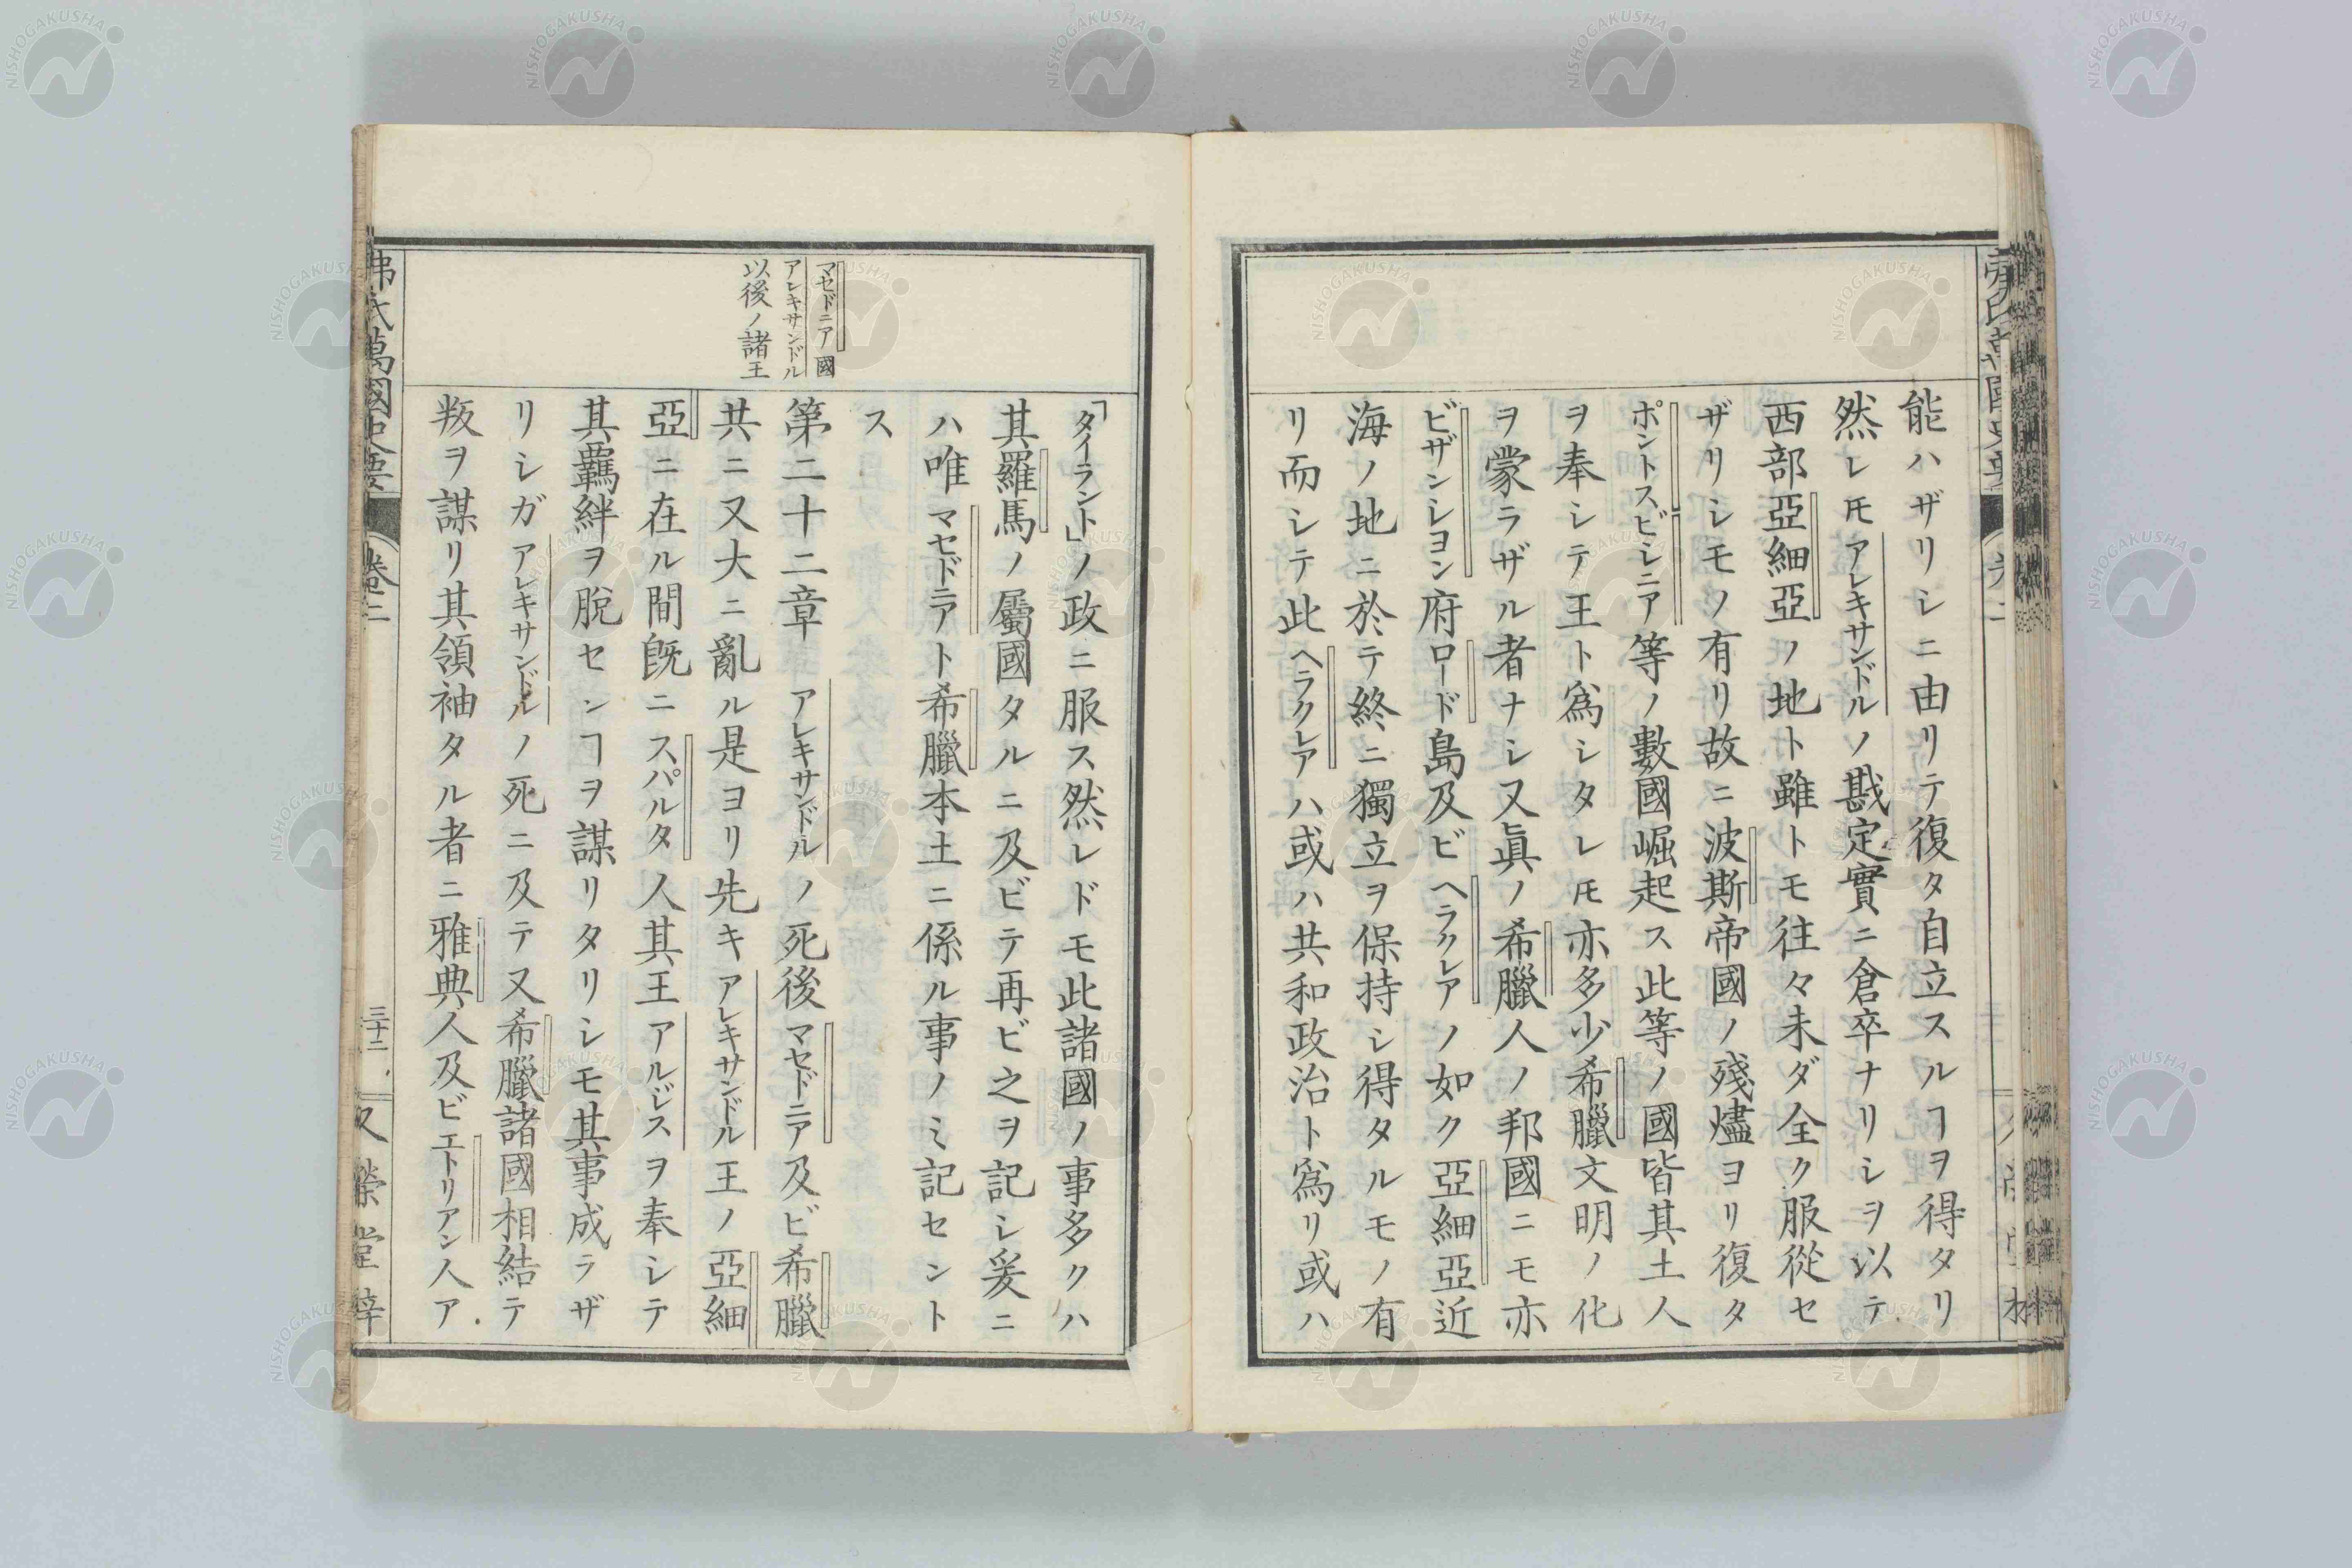 能ハザリシニ由リテ復タ自立スルヿヲ得タリ
然レ𪜈アレキサンドルノ戡定實ニ倉卒ナリシヲ以テ
西部亞細亞ノ地ト雖トモ往々未ダ全ク服從セ
ザリシモノ有リ故ニ波斯帝國ノ殘燼ヨリ復タ
ポントスビシニア等ノ數國崛起ス此等ノ國皆其土人
ヲ奉シテ王ト爲シタレ𪜈亦多少希臘文明ノ化
ヲ蒙ラザル者ナシ又眞ノ希臘人ノ邦國ニモ亦
ビザンシヨン府ロード島及ビヘラクレアノ如ク亞細亞近
海ノ地ニ於テ終ニ獨立ヲ保持シ得タルモノ有
リ而シテ此ヘラクレアハ或ハ共和政治ト爲リ或ハ
「タイラント」ノ政ニ服ス然レドモ此諸國ノ事多クハ
其羅馬ノ屬國タルニ及ビテ再ビ之ヲ記シ爰ニ
ハ唯マセドニアト希臘本土ニ係ル事ノミ記セント
ス
マセドニア國
アレキサンドル
以後ノ諸王
第二十二章 アレキサンドルノ死後マセドニア及ビ希臘
共ニ又大ニ亂ル是ヨリ先キアレキサンドル王ノ亞細
亞ニ在ル間旣ニスパルタ人其王アルジスヲ奉シテ
其羈絆ヲ脫センヿヲ謀リタリシモ其事成ラザ
リシガアレキサンドルノ死ニ及テ又希臘諸國相結テ
叛ヲ謀リ其領袖タル者ニ雅典人及ビエトリアン人ア
弗氏萬國史要 卷二 三十二 又榮堂梓